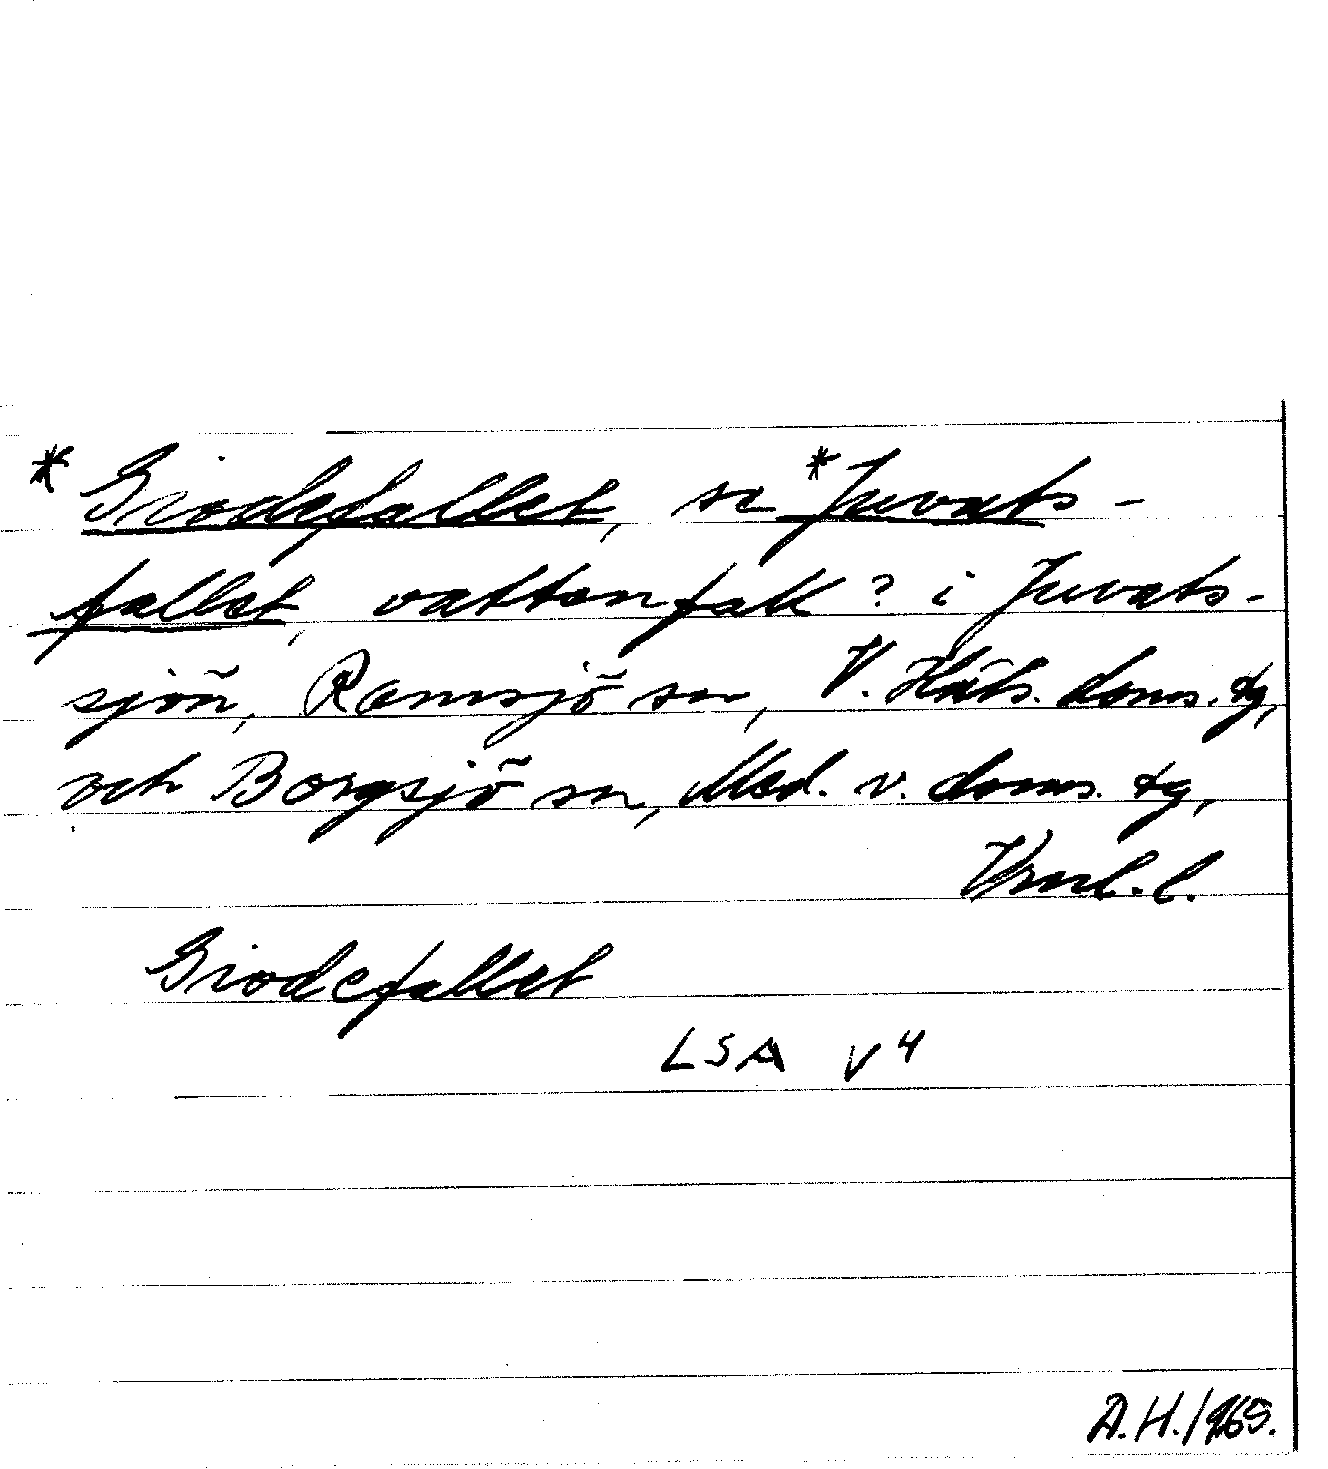 *Giodefallet, se *Juvats-
fallet, vattenfall? i Juvats-
sjön, Ramsjö sn, V. Häls. doms. tg,
och Borgsjö sn, Med. v. doms. tg,
Vnrl. l.
Giodefallet
LSA V4
A.H. 1965.